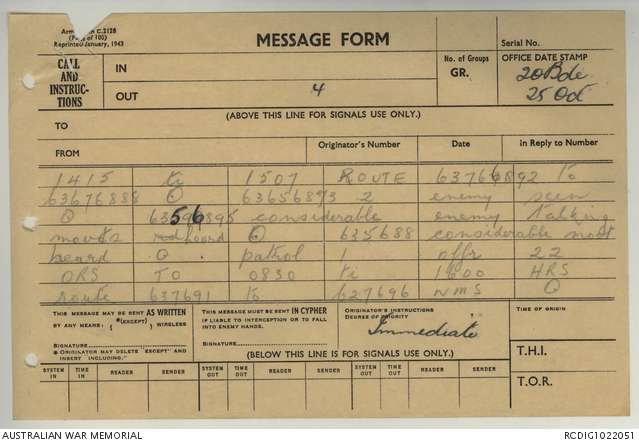 Army Form C.2128
(Pads of 100)
Reprinted January, 1943
MESSAGE FORM
Serial No.
CALL AND INSTRUCTIONS
IN
OUT 4
No. of Groups
GR.
OFFICE DATE STAMP
20 Bde
25 Oct
(ABOVE THIS LINE FOR SIGNALS USE ONLY.)
TO
FROM
Originator's Number
Date
In Reply to Number
1415 ti 1507 ROUTE to
63676888 O 2 enemy seen
O considerable enemy talking
movts heard O 635688 considerable movt
heard O patrol 1 offr 22
ORS TO 0830 ti 1600 HRS
route 637691 to 627696 wms O
THIS MESSAGE MAY BE SENT AS WRITTEN
BY ANY MEANS. { *(EXCEPT) } WIRELESS
SIGNATURE
* ORIGINATOR MAY DELETE "EXCEPT" AND
INSERT "INCLUDING."
THIS MESSAGE MUST BE SENT IN CYPHER
IF LIABLE TO INTERCEPTION OR TO FALL
INTO ENEMY HANDS.
SIGNATURE
ORIGINATOR'S INSTRUCTIONS
DEGREE OF PRIORITY
Immediate
TIME OF ORIGIN
(BELOW THIS LINE IS FOR SIGNALS USE ONLY.)
T.H.I.
SYSTEM IN TIME IN READER SENDER SYSTEM OUT TIME OUT READER SENDER SYSTEM OUT TIME OUT READER SENDER
T.O.R.
AUSTRALIAN WAR MEMORIAL
RCDIG1022051